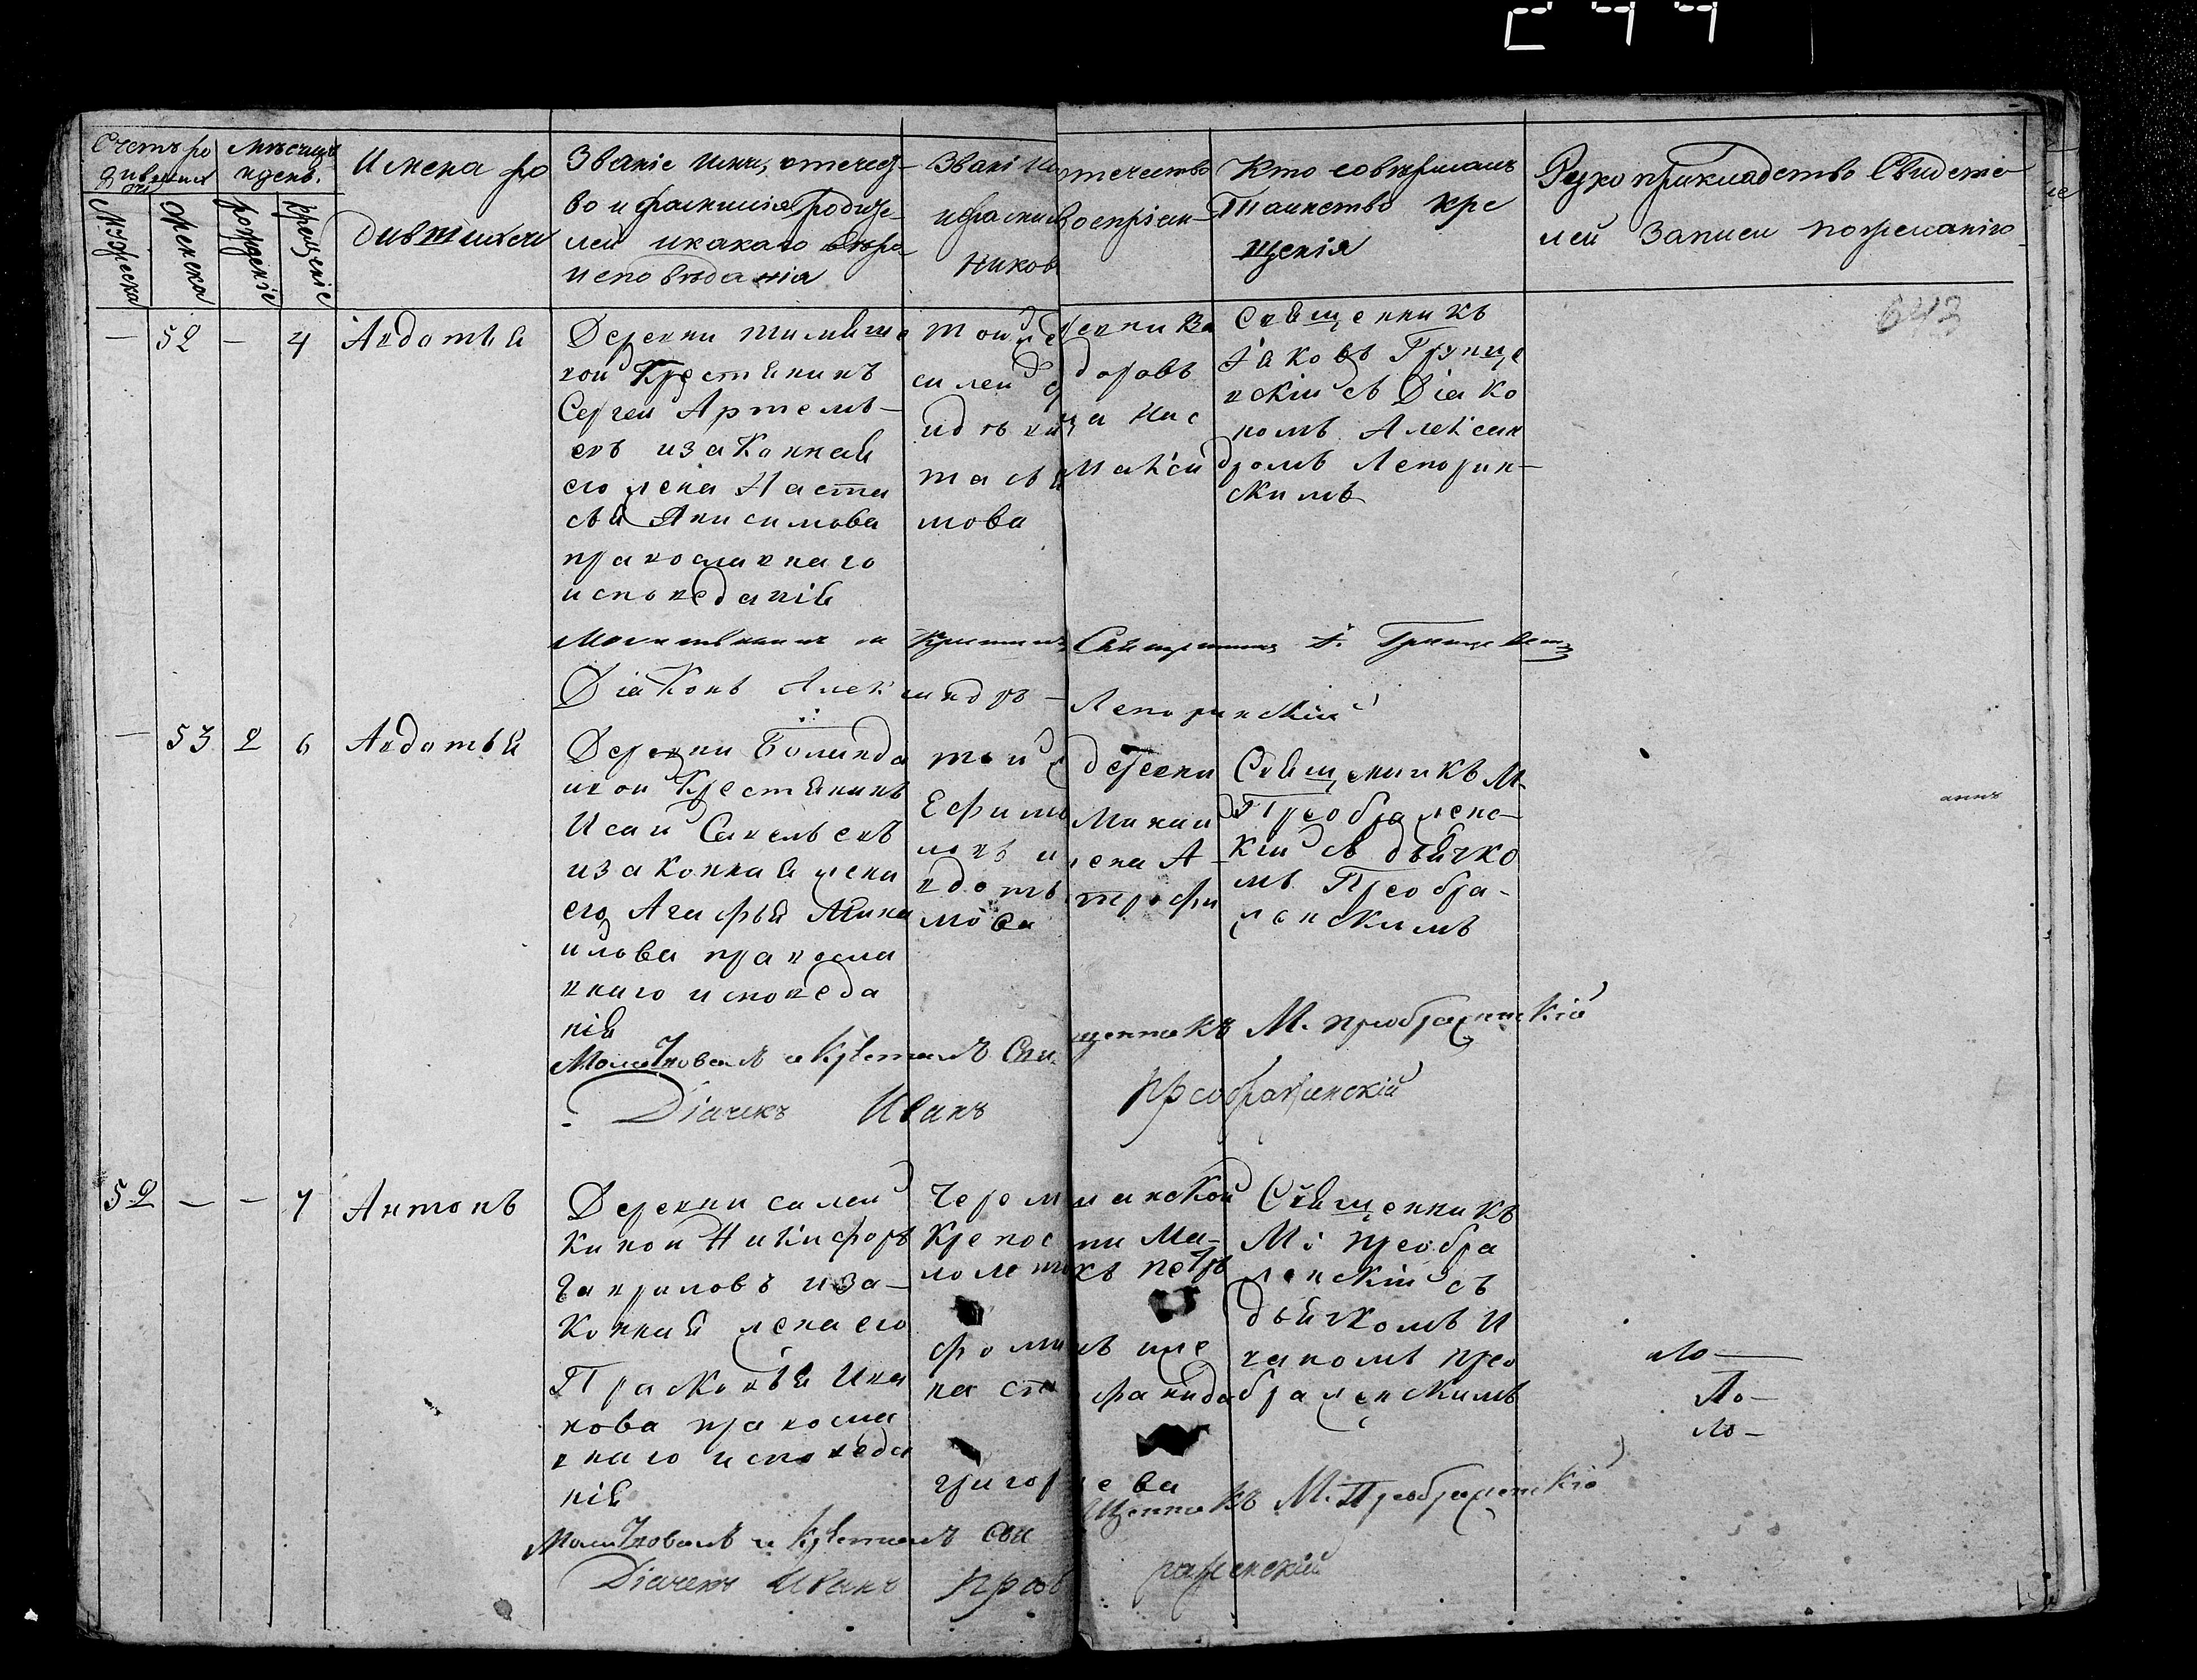 Счетъ ро
дившихся
Мужеска
Женска
Мѣсяцъ
и день.
рожденіе
крещеніе
Имена ро
дившихся
Званіе имя, отечест-
во и фамилія родите-
лей и какаго
исповѣданія
Званіе
и фамилія
отечество
воспріем-
никовъ
Кто совершалъ
Таинство кре
щенія
Рукоприкладство Свидѣте
лей Записи по желанію
643
— 52 — 4 Авдотья
Деревни
вой Крестьянинъ
Сергей Артемь-
евъ и законная
его жена Наста
сья Анисимова
православнаго
исповеданія
той деревни Ва
силей Федоровъ
и девица Нас
тасья Макси
мова
Священникъ
Іаковъ
скій съ Діако
номъ Александ
ромъ Лепорин-
скимъ
Молитвовалъ и Крестилъ Священникъ
Діаконъ Александръ — Лепоринскій
— 53 2 6 Авдотья
Деревни
Крестьянинъ
Исай Савельевъ
и законная жена
его Агафья Миха
илова правосла
внаго исповеда
нія
той деревни
Ефимъ Михаи
ловъ и жена А
вдотья Трофи
мова
Священникъ М.
Преображенс-
кій съ дьячко
мъ Преобра-
женскимъ
Молитвовалъ и Крестилъ Священникъ М. Преображенскій
Діачекъ Иванъ Преображенскій
52 — — 7 Антонъ
Деревни
Никифоръ
Гавриловъ и за-
конная жена его
Прасковья Ива
нова правосла
внаго исповеда
нія
Черемшанской
Крепости Ма-
лолетокъ Петръ
Фоминъ и же
на Стефанида
Григорьева
Священникъ
М: Преобра
женскій съ
дьячкомъ И
ваномъ Прео
браженскимъ
Молитвовалъ и Крестилъ Священникъ М. Преображенскій
Діачекъ Иванъ Преображенскій